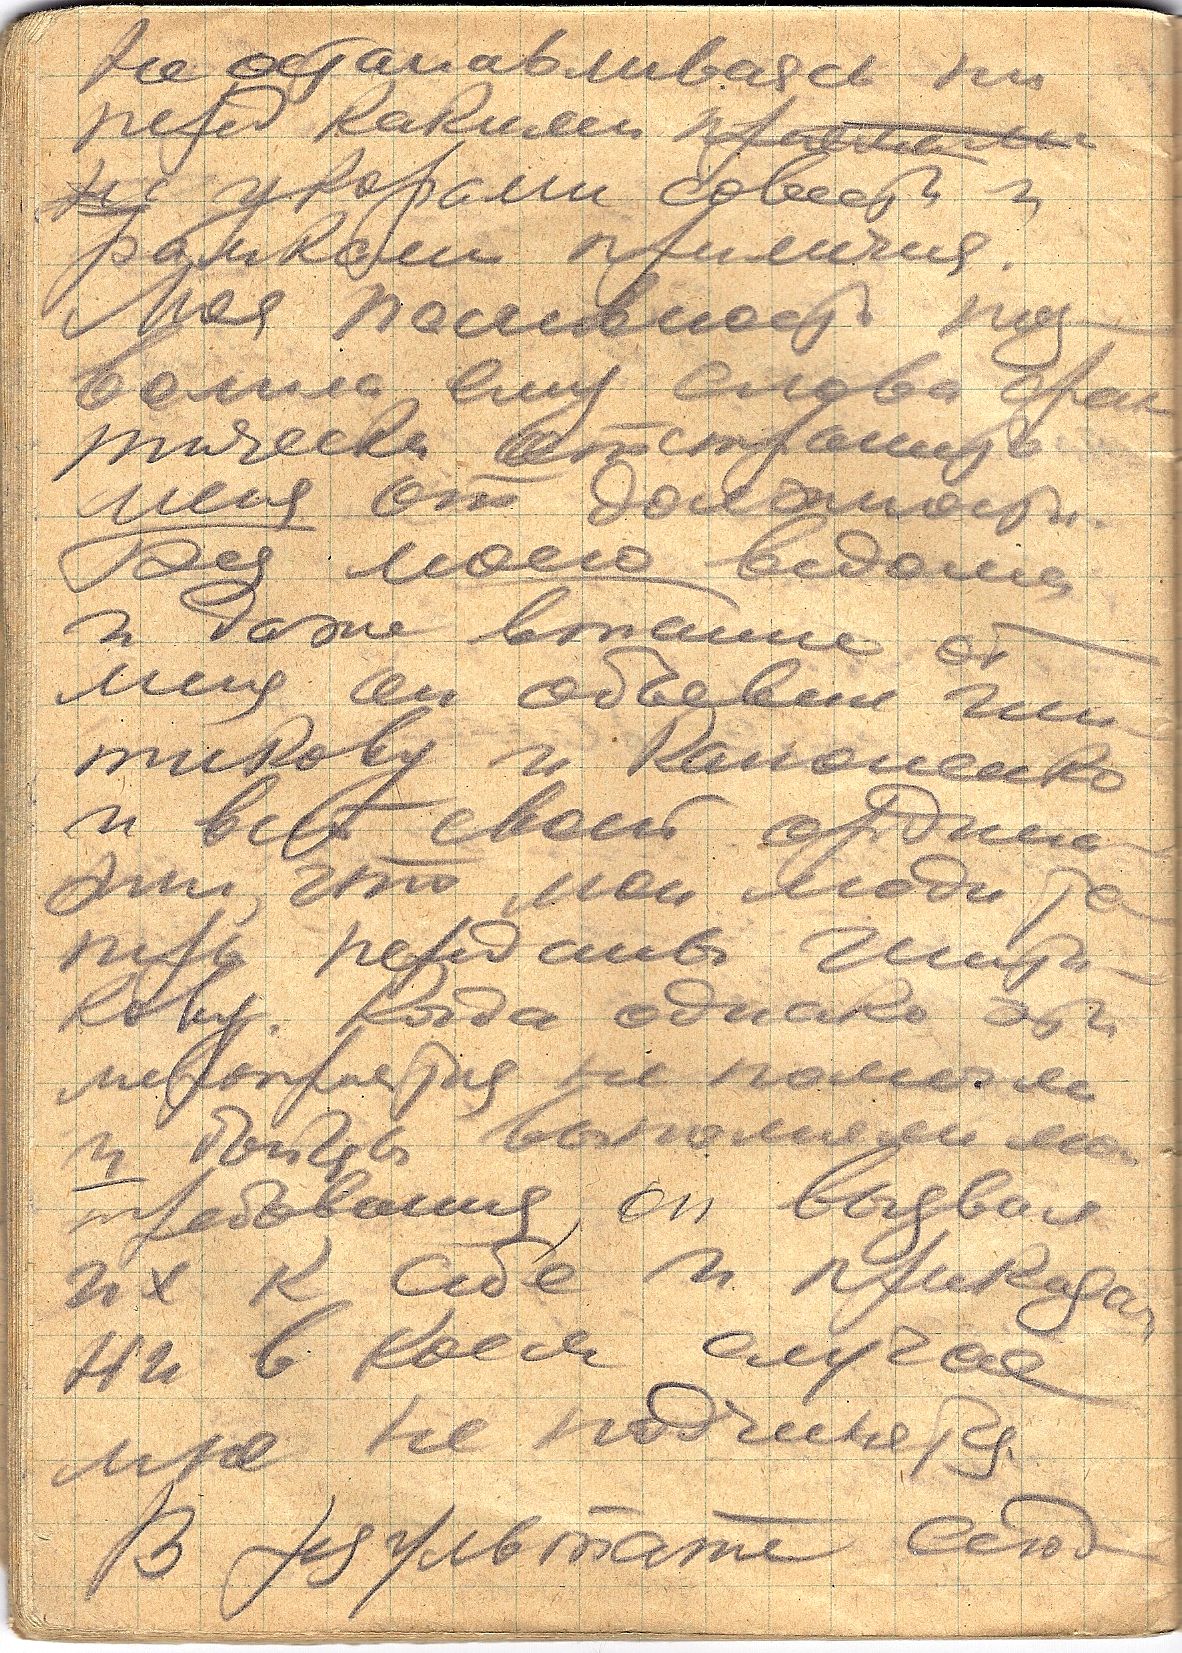 не останавливаясь ни
перед какими
ни укорами совести и
рамками приличия.
Моя пассивность поз-
волила ему снова фак
тически отстранить
меня от должности.
Без моего ведома,
и даже втайне от
меня он объявил Гит
тикову и Каноненко
и всей своей
что мои люди те
перь переданы
кову. Когда однако эти
мероприятия не помогли
и бойцы выполняли мои
требования, он вызвал
их к себе и приказал
ни в коем случае
мне не подчиняться.
В результате